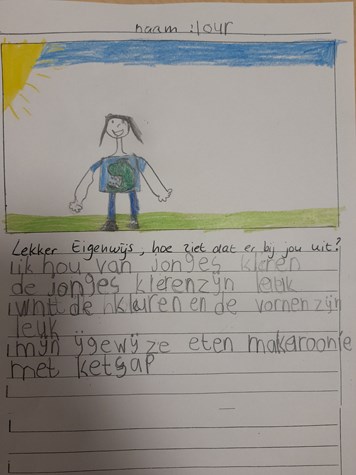 naam : lour
Lekker Eigenwijs, hoe ziet dat er bij jou uit?
ik hou van jonges kleren
de jonges klerenzijn leuk
want de kluren en de vornen zijn
leuk
mijn ijgewijze eten makaroonie
met ketsap